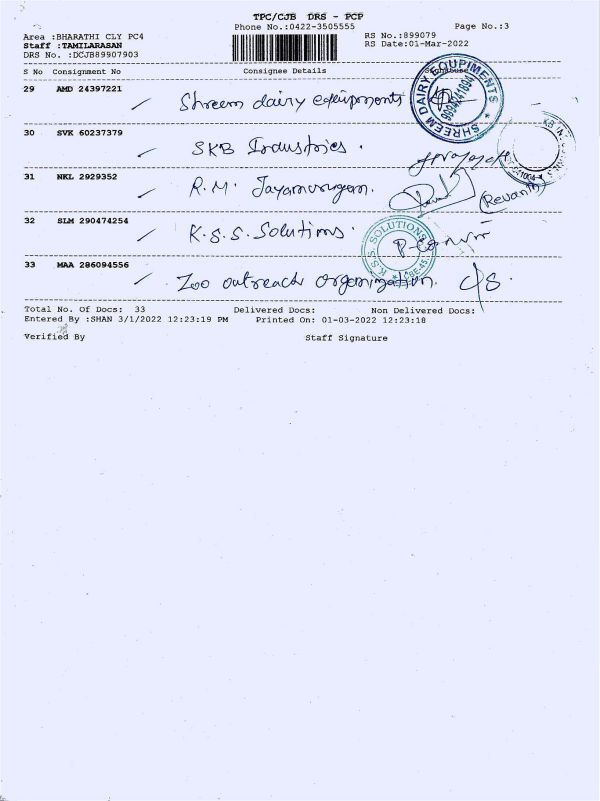 TPC/CJB DRS - PCP
Phone No.:0422-3505555 Page No.:3
Area :BHARATHI CLY PC4 RS No.:899079
Staff :TAMILARASAN RS Date:01-Mar-2022
DRS No. :DCJB89907903
S No Consignment No Consignee Details Signature
29 AMD 24397221 Shreem dairy equipments
SHREEM DAIRY EQUIPMENTS
30 SVK 60237379 SKB Industries.
31 NKL 2929352 R.M. Jayamurugan. (Revanth)
32 SLM 290474254 K.S.S. Solutions.
K.S.S. SOLUTIONS
33 MAA 286094556 Zoo outreach organization. C/S.
Total No. Of Docs: 33 Delivered Docs: Non Delivered Docs:
Entered By :SHAN 3/1/2022 12:23:19 PM Printed On: 01-03-2022 12:23:18
Verified By Staff Signature